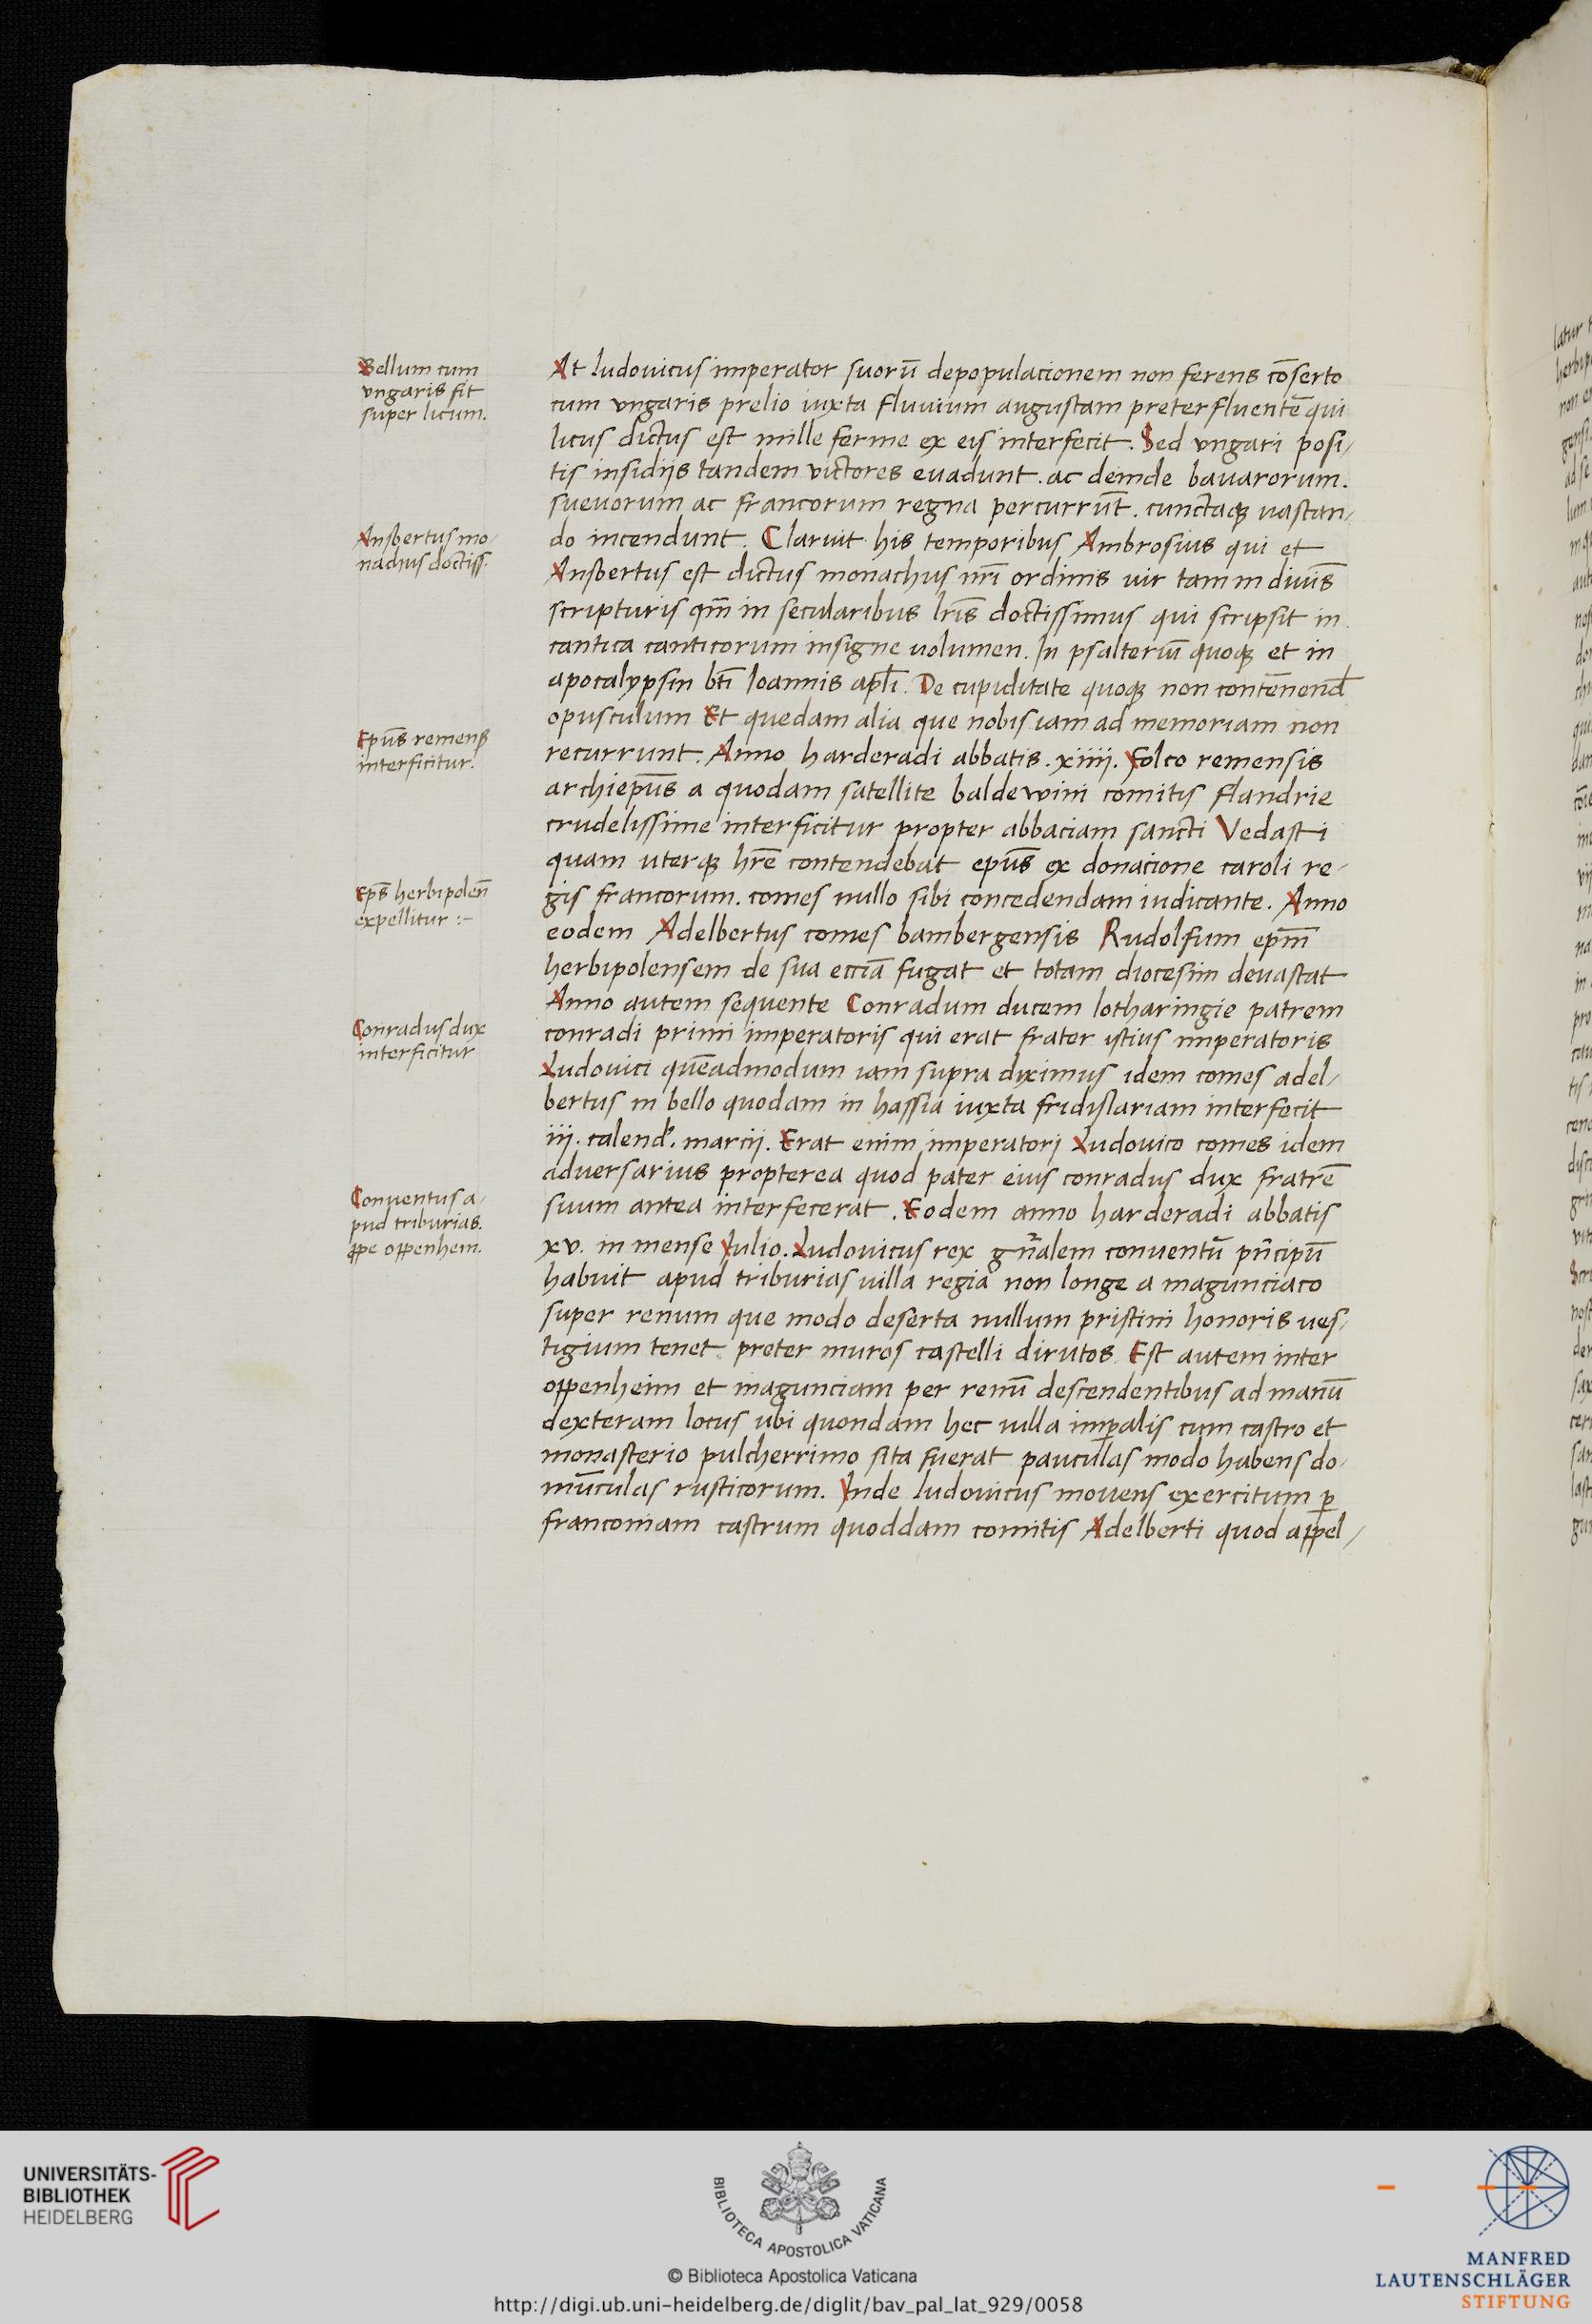 Bellum cum
vngaris fit
super licum.
At ludouicus imperator suorū depopulacionem non ferens cōserto
cum vngaris prelio iuxta fluuium augustam preterfluentē qui
licus dictus est mille ferme ex eis interfecit. Sed vngari posi/
tis insidijs tandem victores euadunt. ac deinde bauarorum.
sueuorum ac francorum regna percurrūt. cunctaqꝫ uastan/
Ansbertus mo/
nachus doctiss.
do incendunt. Claruit his temporibus Ambrosius qui et
Ansbertus est dictus monachus nr̄i ordinis uir tam in diuīs
scripturis qm̄ in secularibus lr̄is doctissimus qui scripsit in
cantica canticorum insigne uolumen. In psalteriū quoqꝫ et in
apocalypsin bt̄i Ioannis apl̄i. De cupiditate quoqꝫ non contēnend̄
opusculum Et quedam alia que nobis iam ad memoriam non
Epūs remenꝭ
interficitur.
recurrunt. Anno harderadi abbatis. xiiij. Folco remensis
archiepūs a quodam satellite baldewini comitis flandrie
crudelissime interficitur propter abbaciam sancti Vedasti
quam uterqꝫ hr̄e contendebat epūs ex donacione caroli re/
Eps̄ herbipoleñ
expellitur :~
gis francorum. comes nullo sibi concedendam iudicante. Anno
eodem Adelbertus comes bambergensis Rudolfum epm̄
herbipolensem de sua eccīa fugat et totam diocesim deuastat
Anno autem sequente Conradum ducem lotharingie patrem
Conradus dux
interficitur
conradi primi imperatoris qui erat frater istius imperatoris
Ludouici quēadmodum iam supra diximus idem comes adel/
bertus in bello quodam in hassia iuxta fridislariam interfecit
iij. calend. marcij. Erat enim imperatori Ludouico comes idem
aduersarius propterea quod pater eius conradus dux fratrē
Conuentus a/
pud triburias.
ꝓpe oppenhem.
suum antea interfecerat. Eodem anno harderadi abbatis
xv. in mense Iulio. Ludouicus rex gn̄alem conuentū pn̄cipū
habuit apud triburias uilla regia non longe a magunciaco
super renum que modo deserta nullum pristini honoris ues/
tigium tenet preter muros castelli dirutos. Est autem inter
oppenheim et magunciam per renū descendentibus ad manū
dexteram locus ubi quondam hec uilla imꝑalis cum castro et
monasterio pulcherrimo sita fuerat pauculas modo habens do/
mūculas rusticorum. Inde ludouicus mouens exercitum ꝑ
franconiam castrum quoddam comitis Adelberti quod appel/
UNIVERSITÄTS-
BIBLIOTHEK
HEIDELBERG
BIBLIOTECA APOSTOLICA VATICANA
© Biblioteca Apostolica Vaticana
http://digi.ub.uni-heidelberg.de/diglit/bav_pal_lat_929/0058
MANFRED
LAUTENSCHLÄGER
STIFTUNG